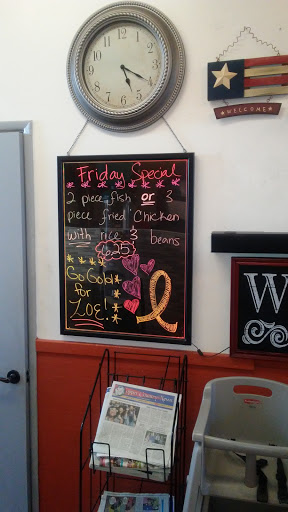 WELCOME
Friday Special
2 piece fish or 3
piece fried Chicken
with rice & beans
6.25
Go Gold
for
ZOE!
W